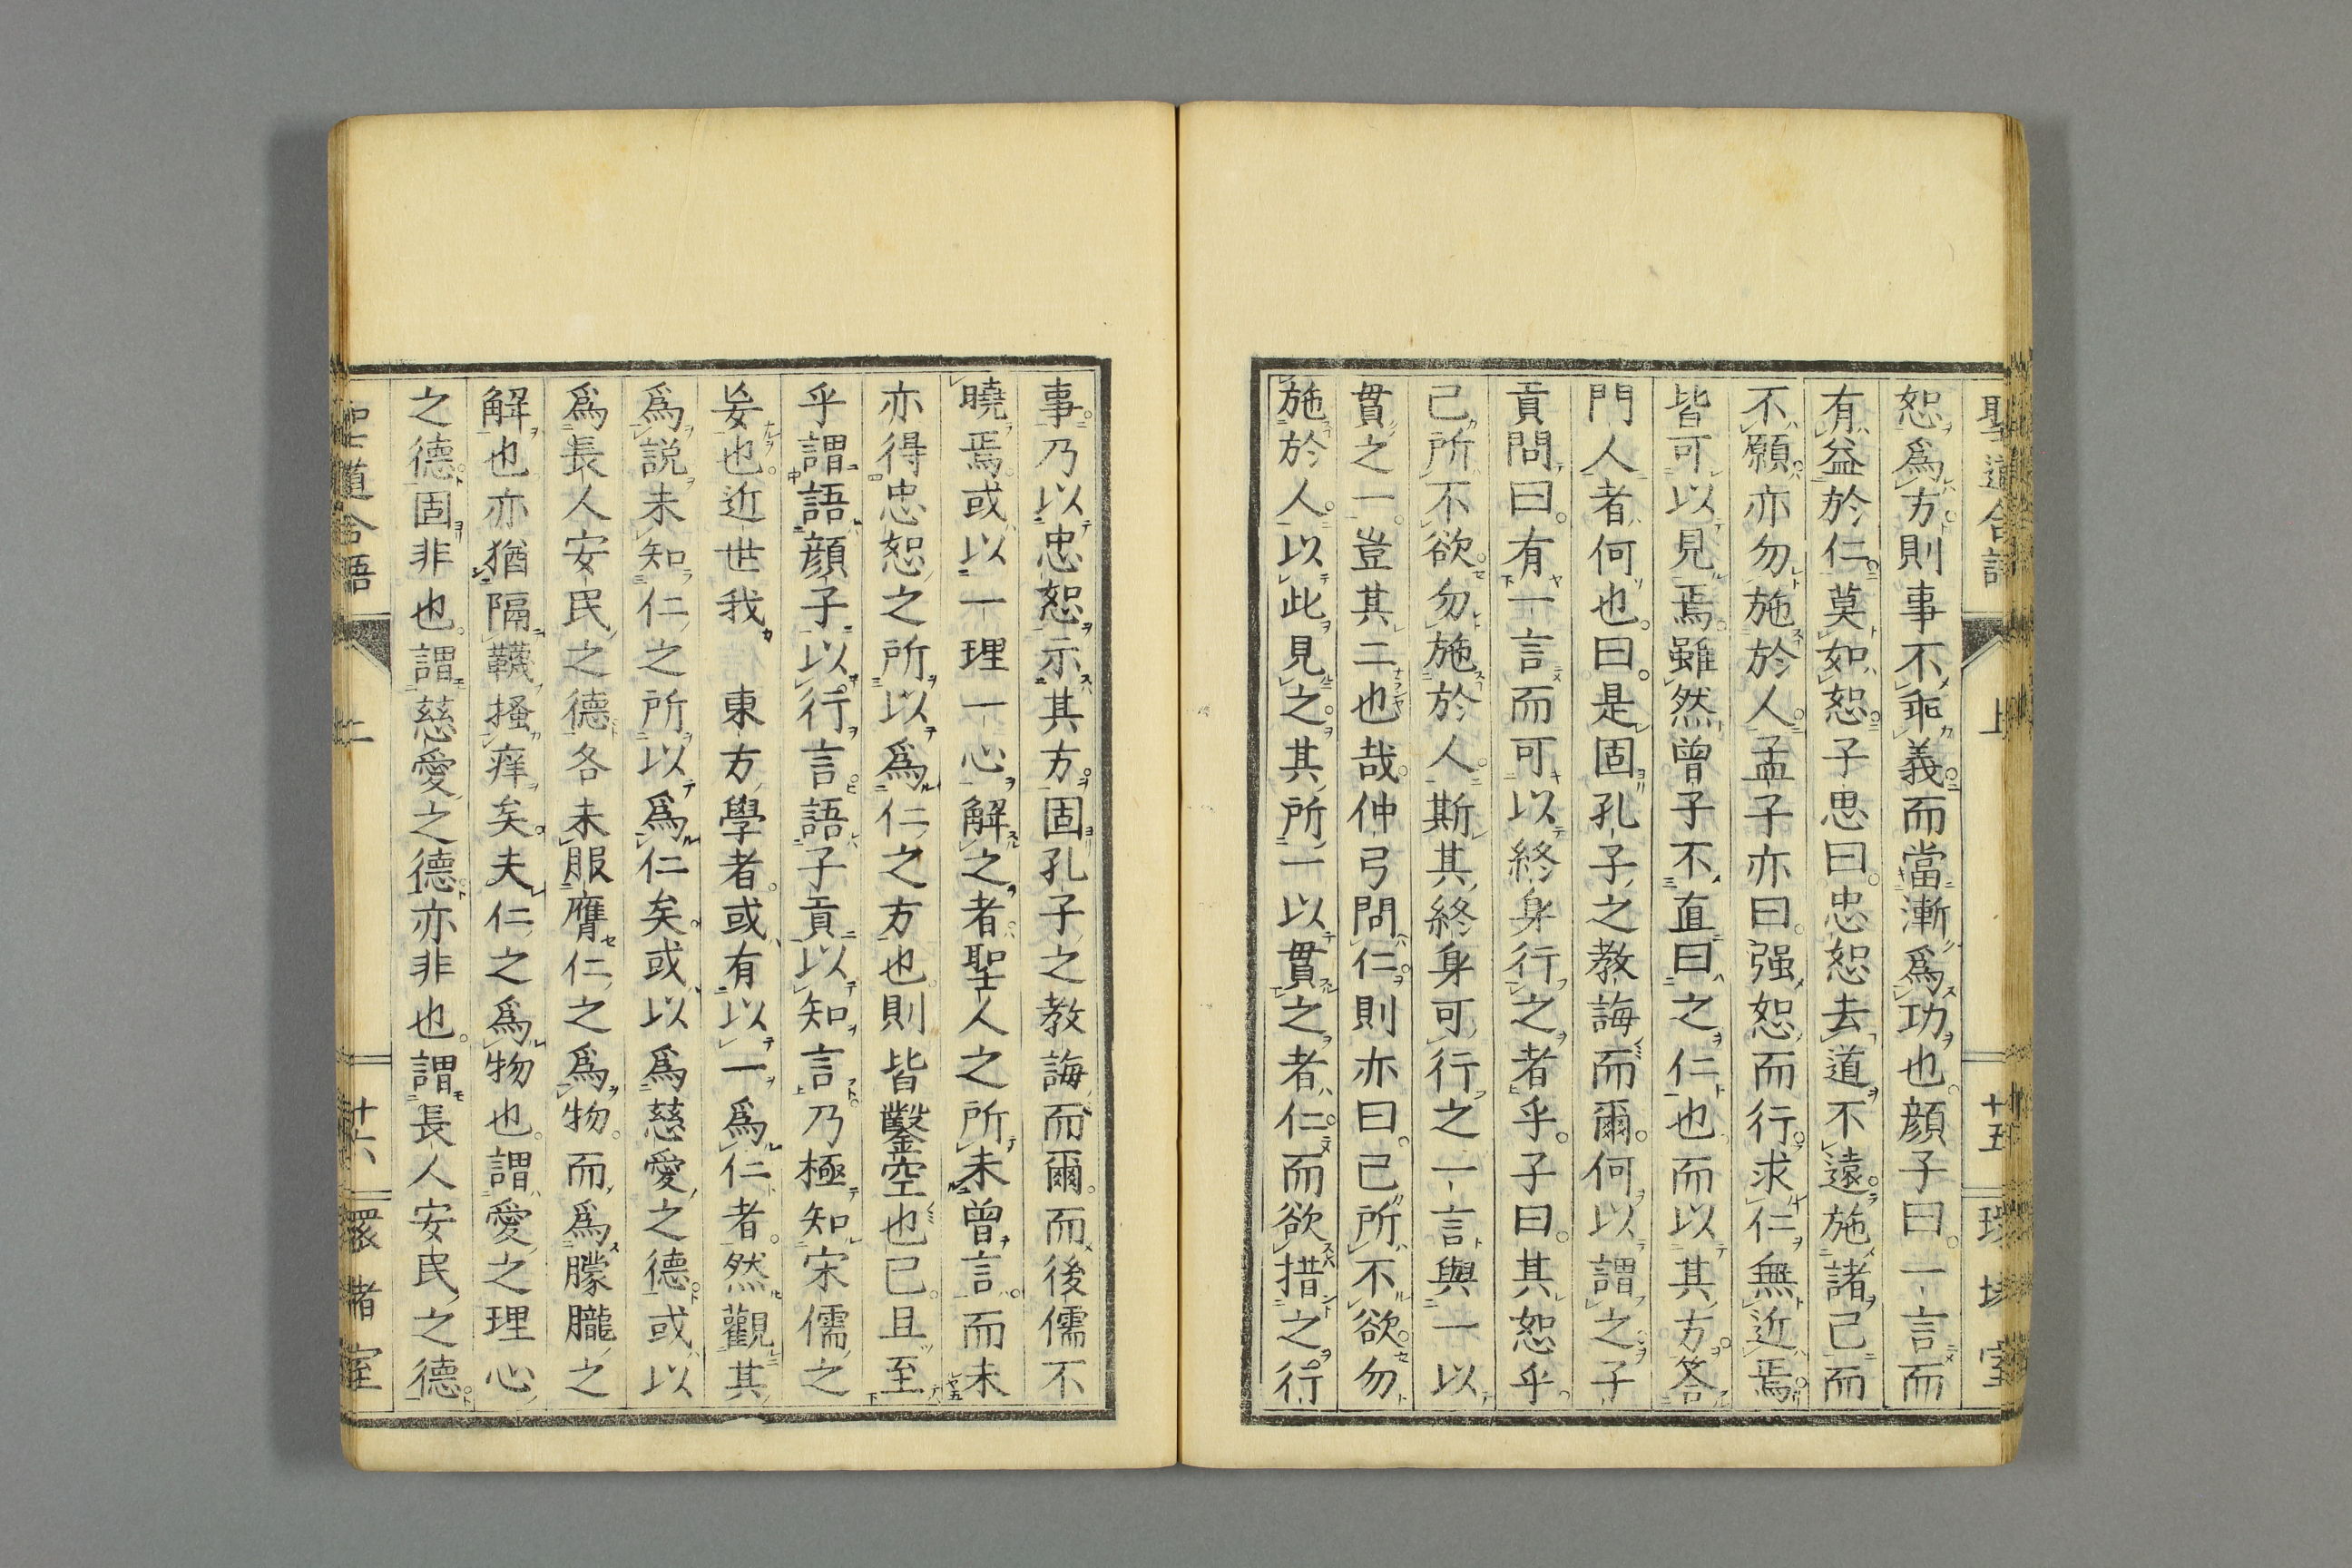 聖道合語　上　十五
恕爲方則事不乖義而當漸爲功也顔子曰一言而
有益於仁莫如恕子思曰忠恕去道不遠施諸己而
不願亦勿施於人孟子亦曰强恕而行求仁無近焉
皆可以見焉雖然曾子不直曰之仁也而以其方答
門人者何也曰是固孔子之教誨而爾何以謂之子
貢問曰有一言而可以終身行之者乎子曰其恕乎
己所不欲勿施於人斯其終身可行之一言與一以
貫之一豈其二也哉仲弓問仁則亦曰己所不欲勿
施於人以此見之其所一以貫之者仁而欲措之行
事乃以忠恕示其方固孔子之教誨而爾而後儒不
曉焉或以一理一心解之者聖人之所未曾言而未
亦得忠恕之所以爲仁之方也則皆鑿空也已且至
乎謂語顔子以行言語子貢以知言乃極知宋儒之
妄也近世我　東方學者或有以一爲仁者然觀其
爲説未知仁之所以爲仁矣或以爲慈愛之德或以
爲長人安民之德各未服膺仁之爲物而爲朦朧之
解也亦猶隔韈搔痒矣夫仁之爲物也謂愛之理心
之德固非也謂慈愛之德亦非也謂長人安民之德
聖道合語　上　十六　環堵室